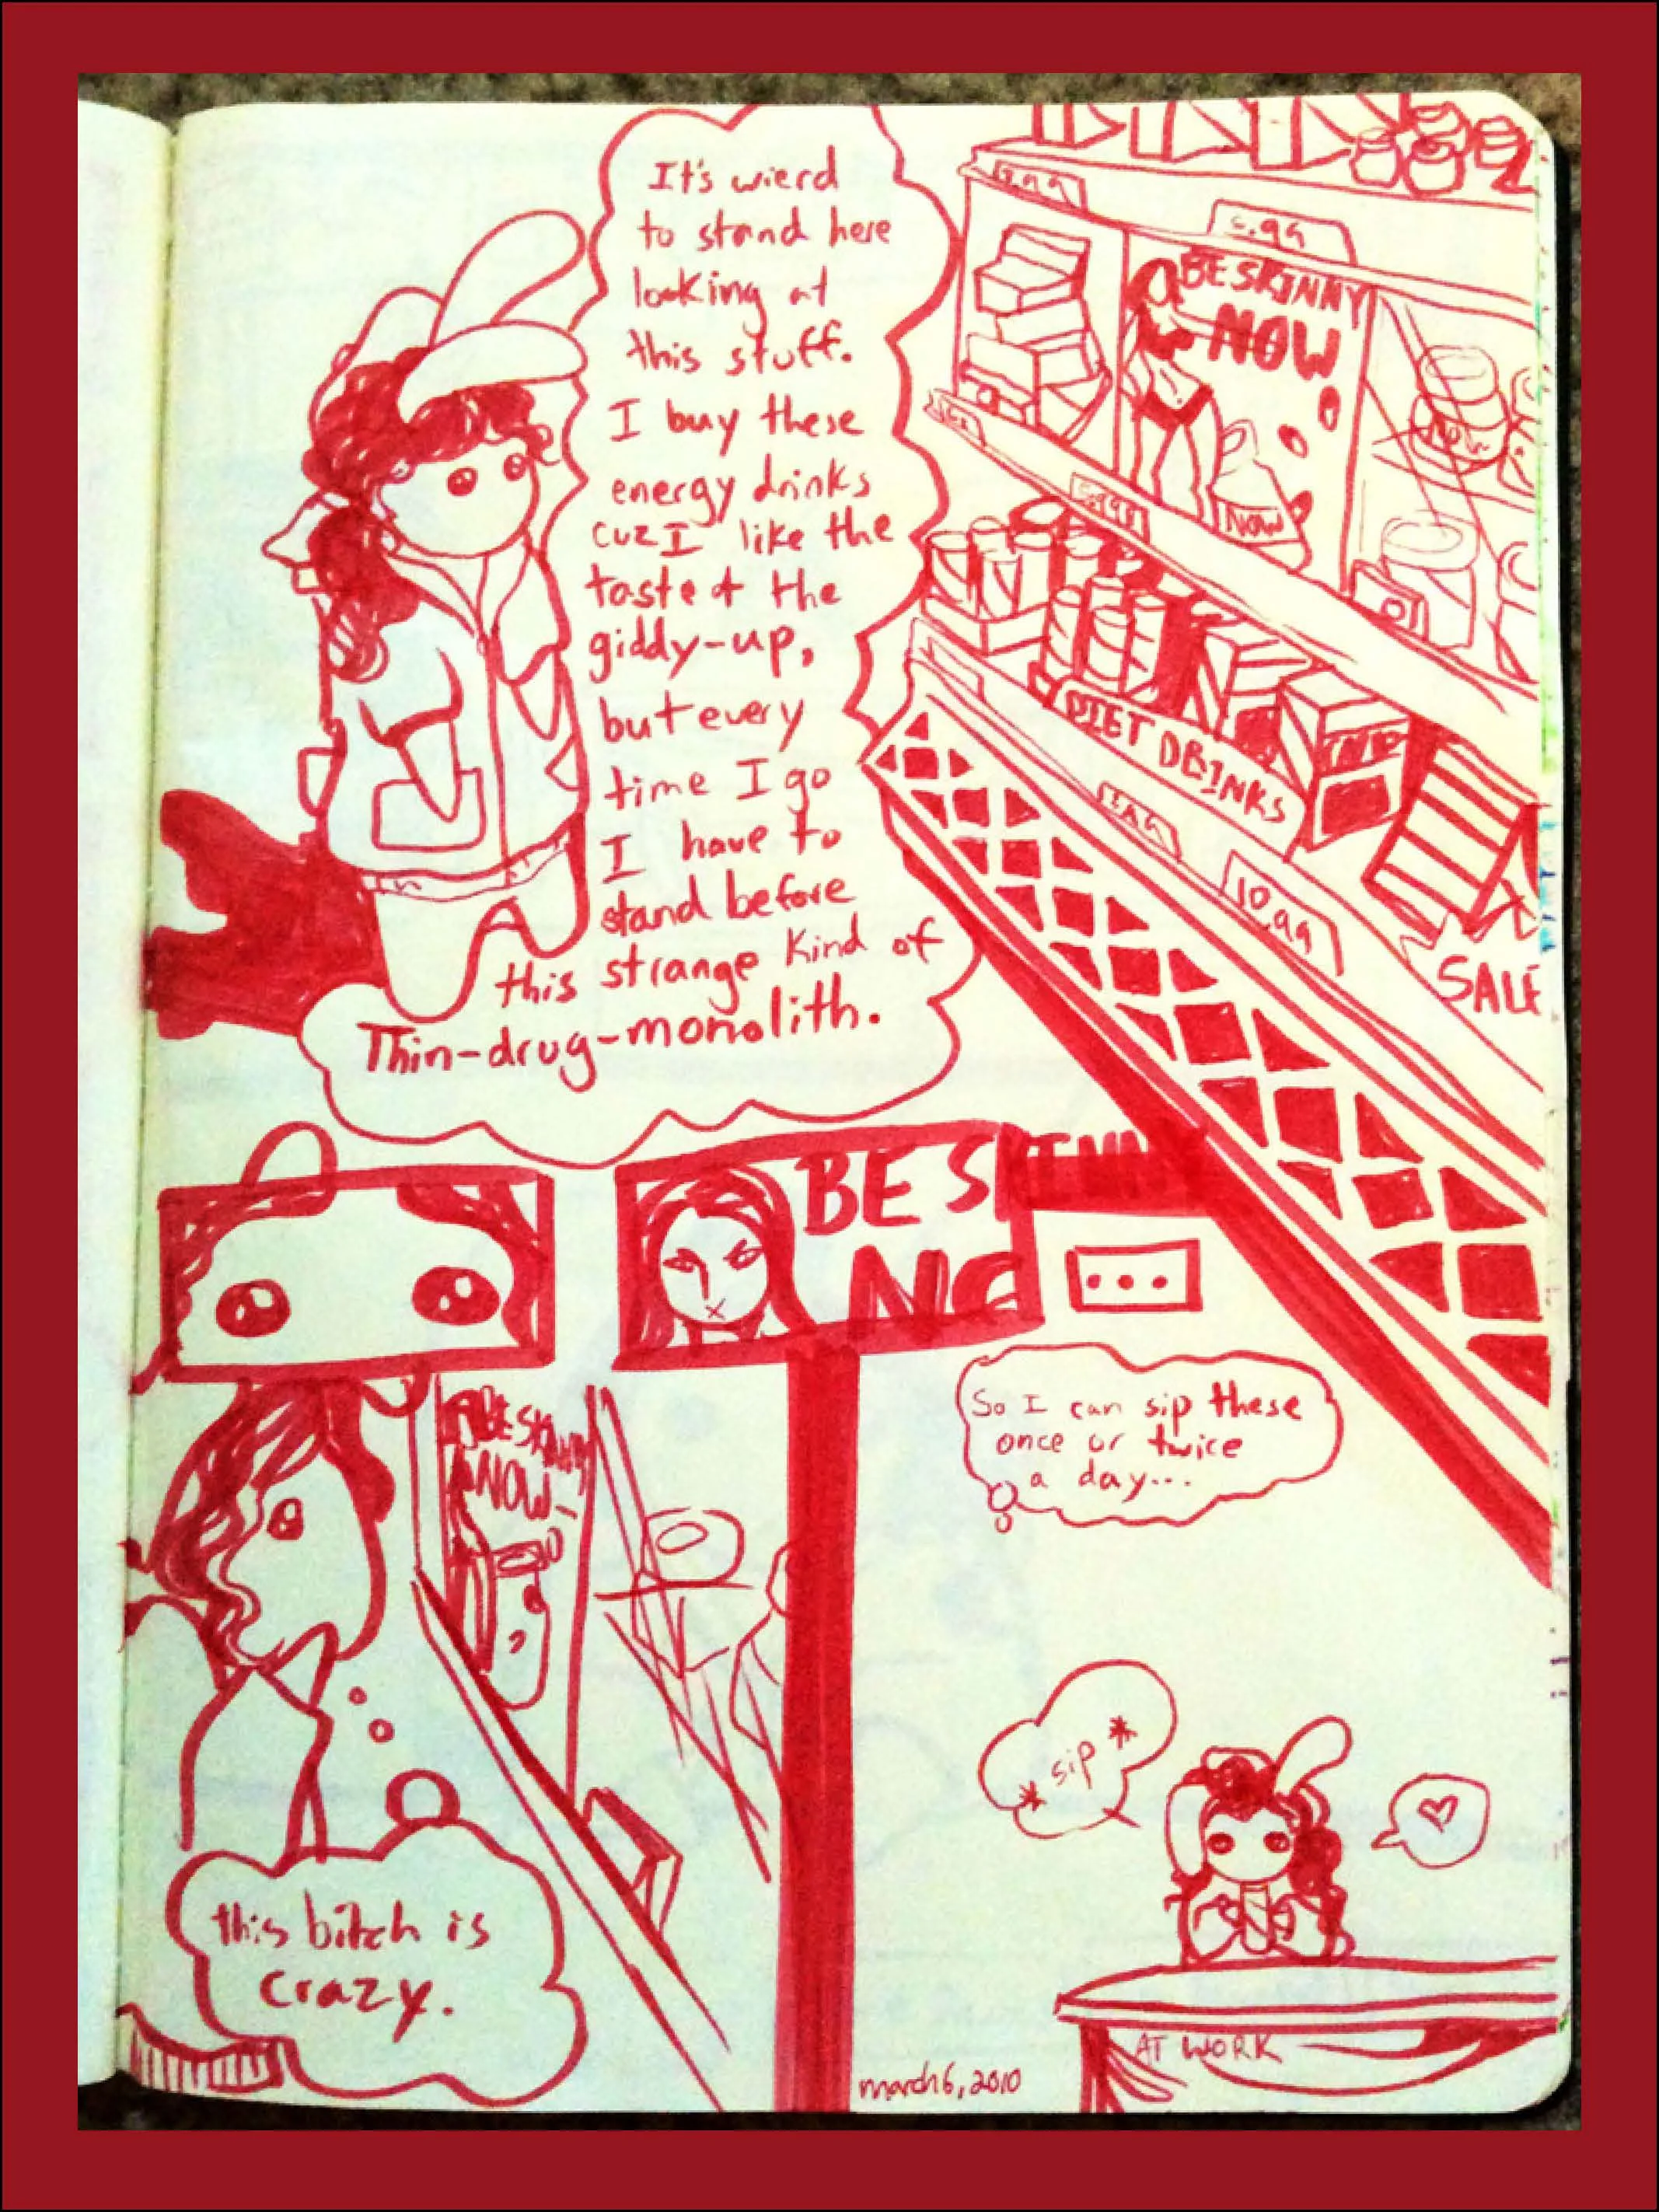 It's wierd
to stand here
looking at
this stuff.
I buy these
energy drinks
cuz I like the
taste + the
giddy-up,
but every
time I go
I have to
stand before
this strange kind of
Thin-drug-monolith.
5.99
BE SKINNY
NOW
NOW
DIET DRINKS
10.99
SALE
BE SKINNY
NO
...
So I can sip these
once or twice
a day...
BE SKINNY
NOW
this bitch is
crazy.
*sip*
AT WORK
march 6, 2010